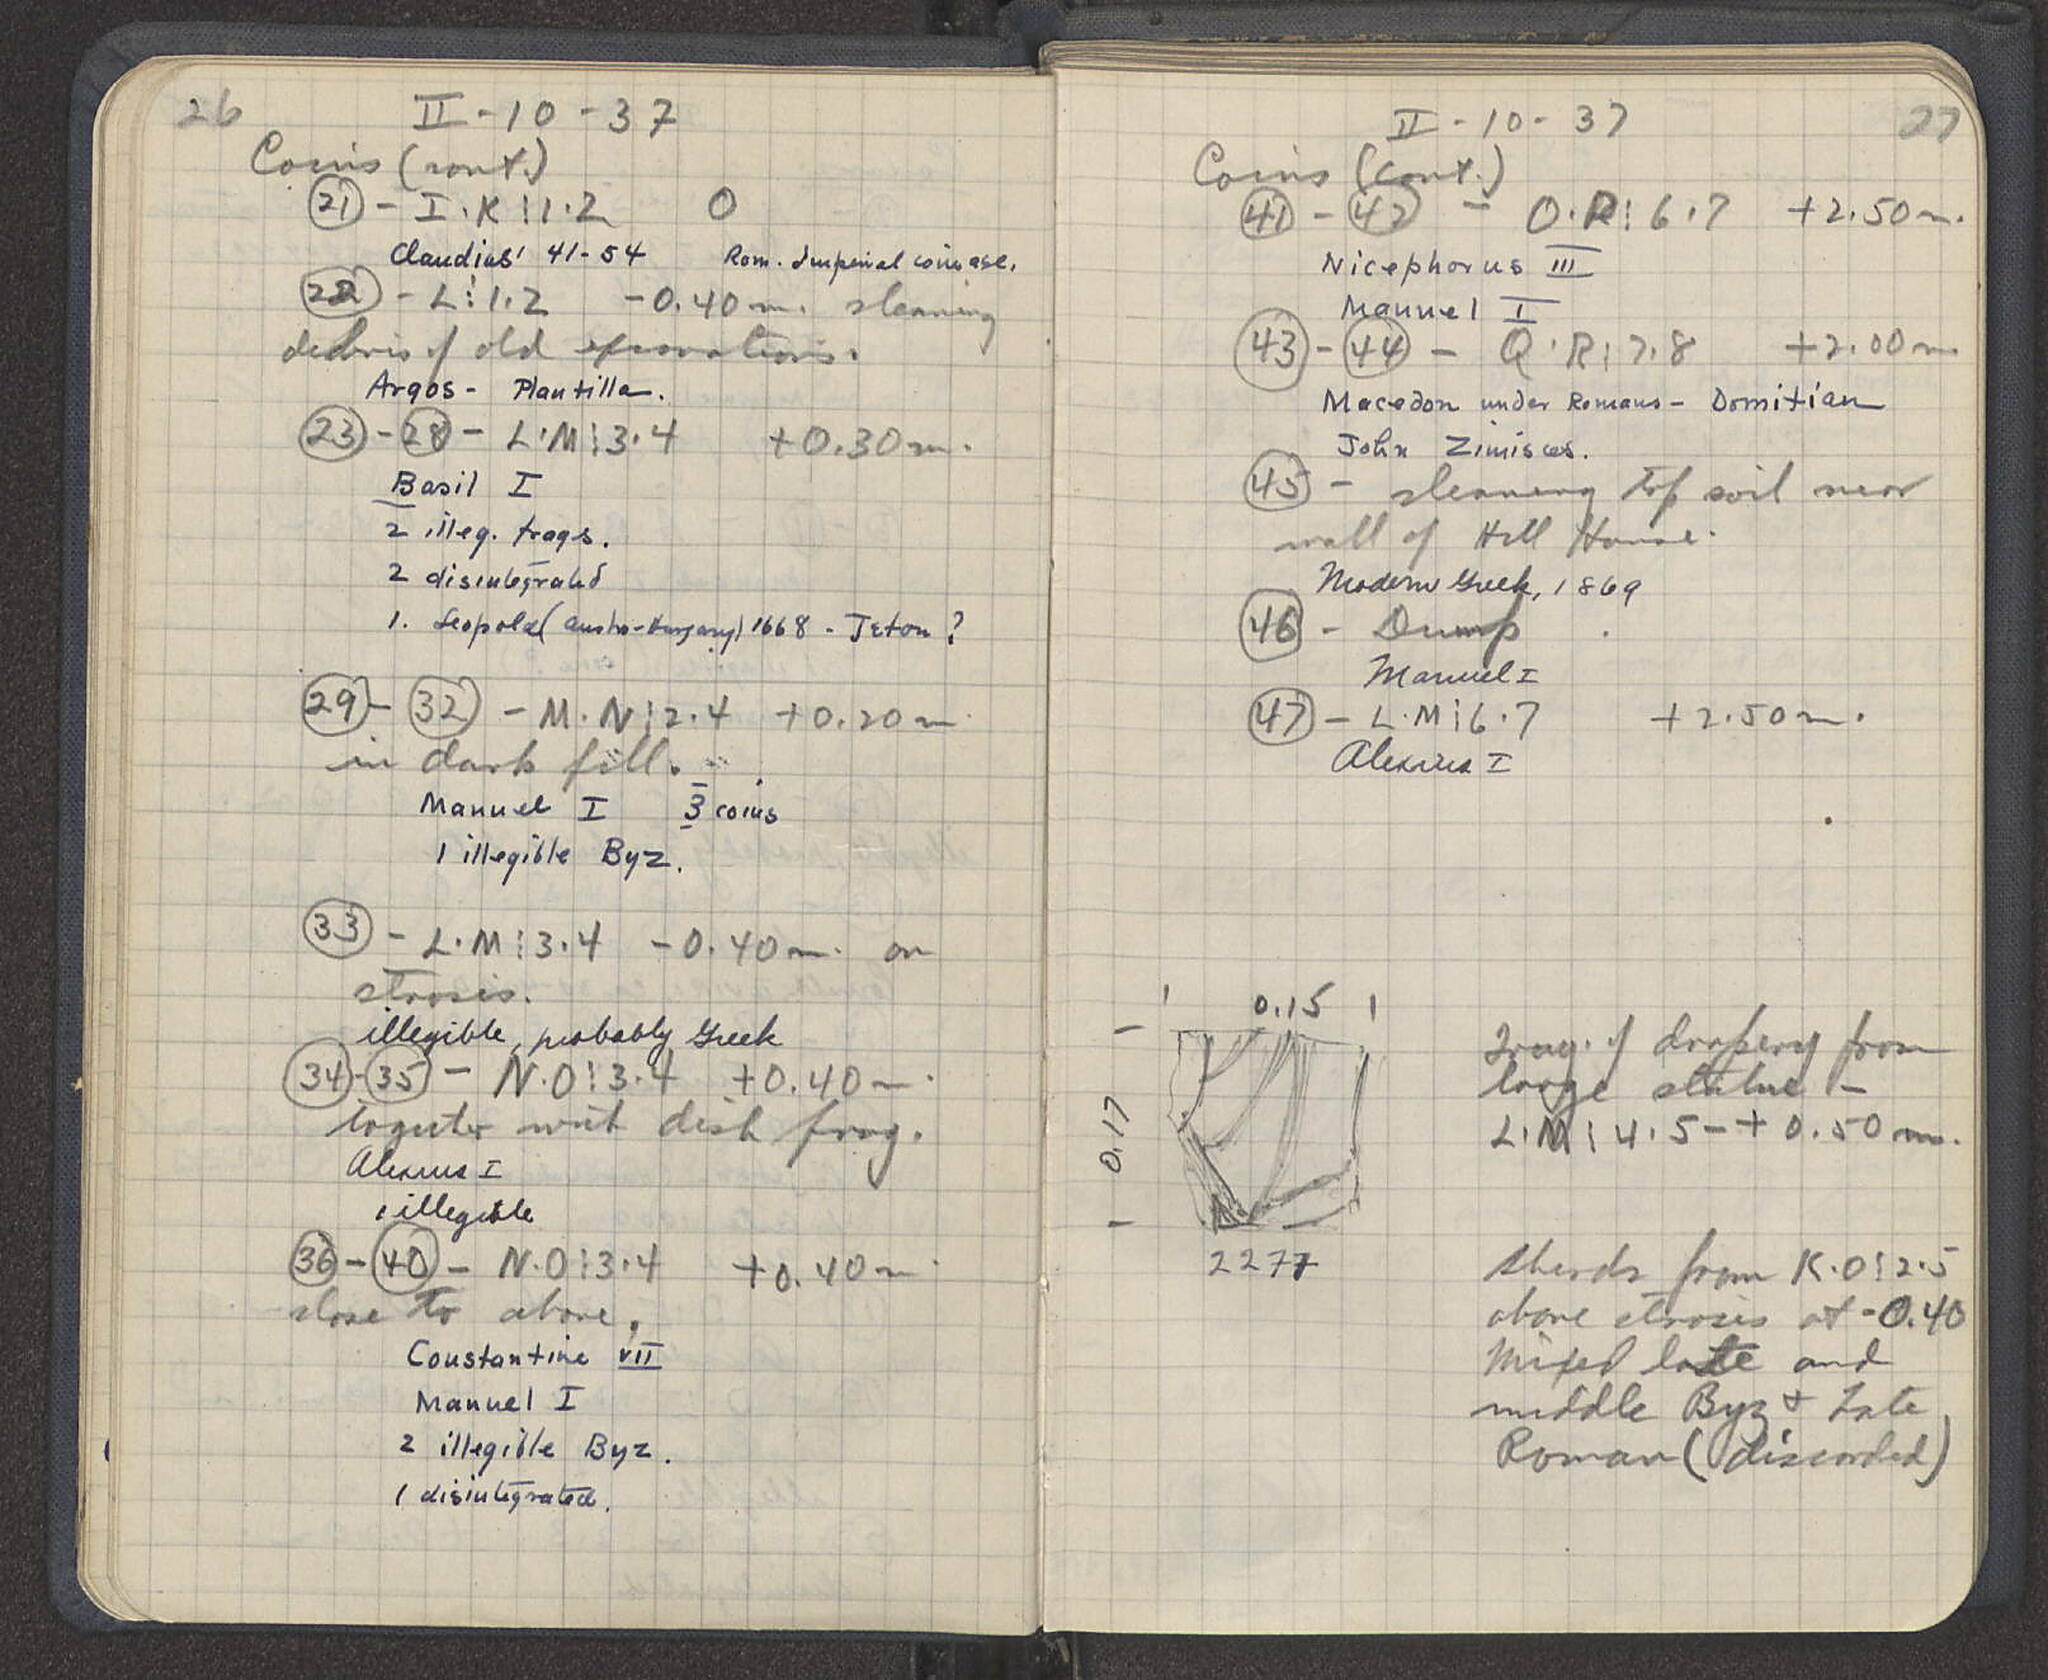 26
II - 10 - 37
Coins (cont.)
21 - I·K⁝1·2 0
Claudius 41-54 Rom. Imperial coinage.
22 - L⁝1.2 -0.40 m. cleaning
debris of old excavations.
Argos - Plautilla.
23 - 28 - L·M⁝3·4 +0.30 m.
Basil I
2 illeg. frags.
2 disintegrated
1. Leopold (Austro-Hungary) 1668 - Jeton ?
29 - 32 - M·N⁝2·4 +0.20 m
in dark fill.
Manuel I 3 coins
1 illegible Byz.
33 - L·M⁝3·4 -0.40 m. on
strosis.
illegible, probably Greek
34-35 - N·O⁝3·4 +0.40 m.
together with dish frag.
Alexius I
1 illegible
36 - 40 - N·O⁝3·4 +0.40 m.
close to above.
Constantine VII
Manuel I
2 illegible Byz.
1 disintegrated.
27
II - 10 - 37
Coins (cont.)
41 - 42 - O·R⁝6·7 +2.50 m.
Nicephorus III
Manuel I
43 - 44 - Q·R⁝7.8 +2.00 m
Macedon under Romans - Domitian
John Zimisces.
45 - cleaning top soil near
wall of Hill House.
Modern Greek, 1869
46 - Dump
Manuel I
47 - L·M⁝6·7 +2.50 m.
Alexius I
0.15
0.17
2277
Frag. of drapery from
large statue -
L·M⁝4.5 - +0.50 m.
Sherds from K·O⁝2.5
above strosis at -0.40
Mixed late and
middle Byz + Late
Roman (discarded)